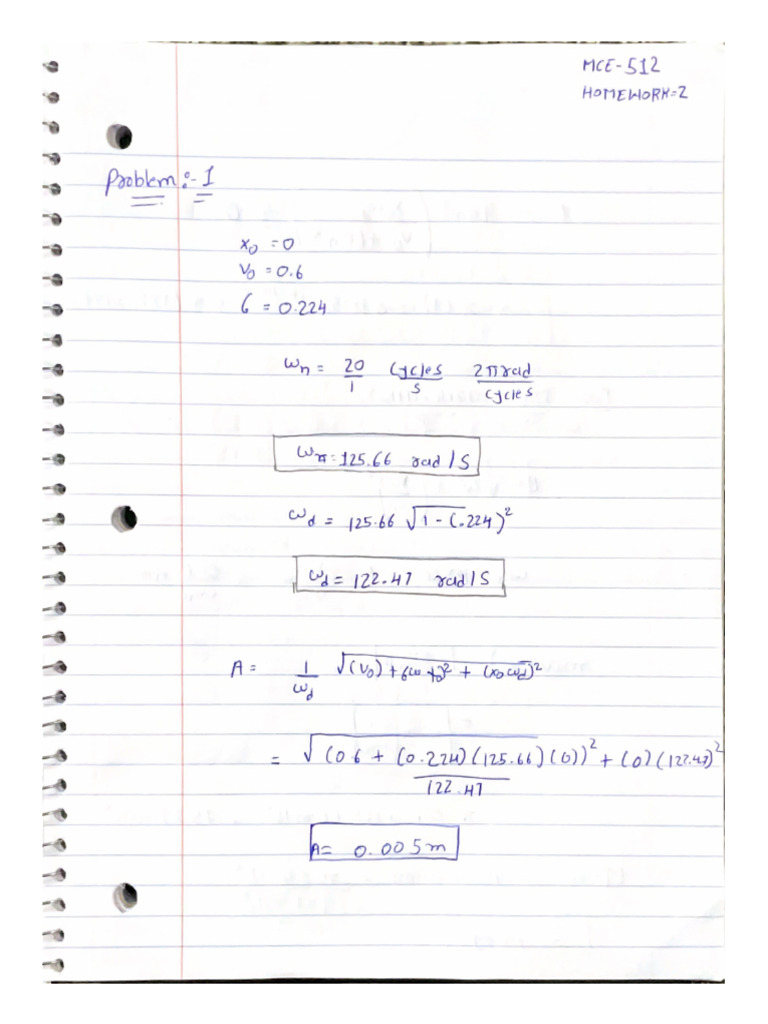 MCE-512
HOMEWORK=2
Problem:- 1
x₀ = 0
v₀ = 0.6
6 = 0.224
ωn = 20/1 cycles/s 2π rad/cycles
ωn = 125.66 rad/s
ωd = 125.66 √1 - (.224)²
ωd = 122.47 rad/s
A = 1/ωd √(v₀) + 6ω x₀)² + (x₀ωd)²
= √(0.6 + (0.224)(125.66)(0))² + (0)(122.47)² / 122.47
A= 0.005m